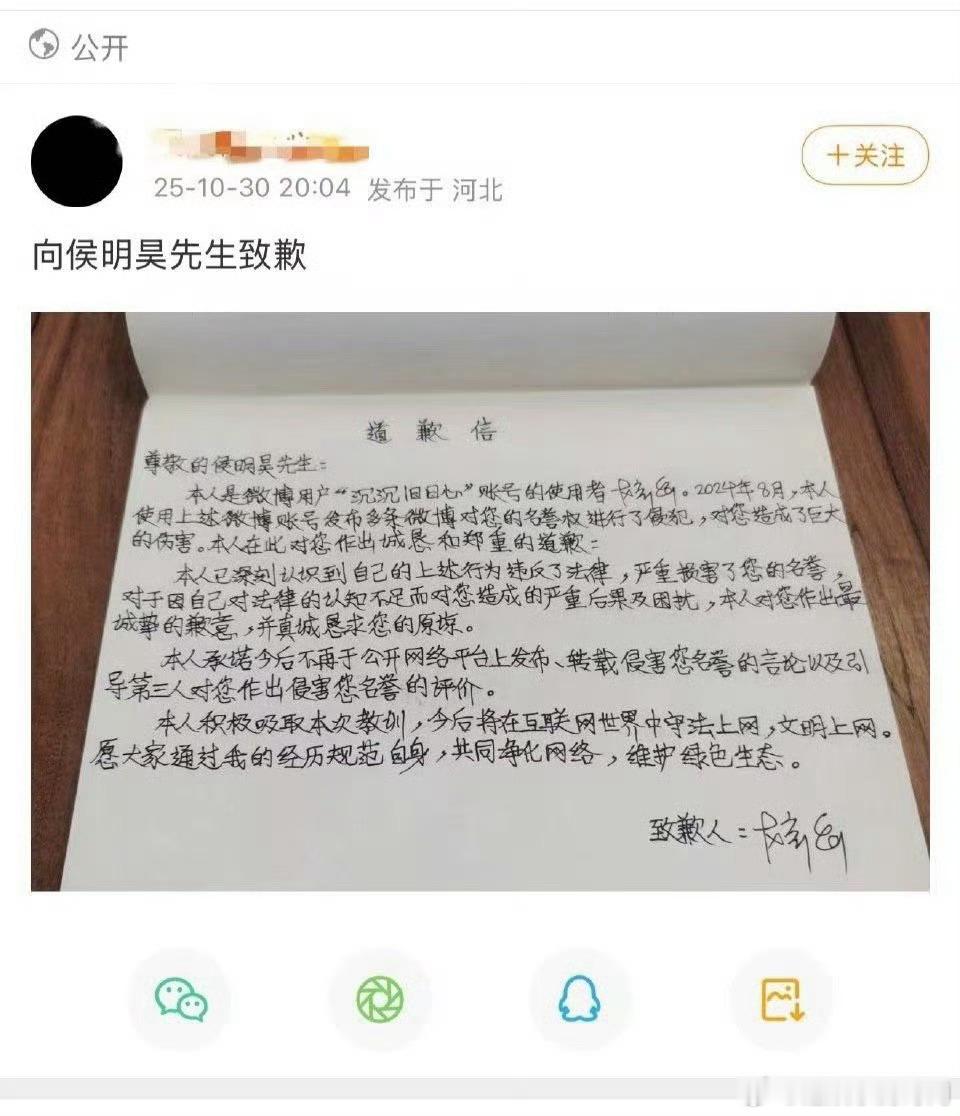 公开
25-10-30 20:04 发布于 河北
+关注
向侯明昊先生致歉
道歉信
尊敬的侯明昊先生：
本人是微博用户“沉沉旧日心”账号的使用者。2024年8月，本人
使用上述微博账号发布多条微博对您的名誉权进行了侵犯，对您造成了巨大
的伤害。本人在此对您作出城恳和郑重的道歉：
本人已深刻认识到自己的上述行为违反了法律，严重损害了您的名誉，
对于因自己对法律的认知不足而对您造成的严重后果及困扰，本人对您作出最
城挚的歉意，并真城恳求您的原谅。
本人承诺今后不再于公开网络平台上发布、转载侵害您名誉的言论以及引
导第三人对您作出侵害您名誉的评价。
本人积极吸取本次教训，今后将在互联网世界中守法上网，文明上网。
愿大家通过我的经历规范自身，共同净化网络，维护绿色生态。
致歉人：